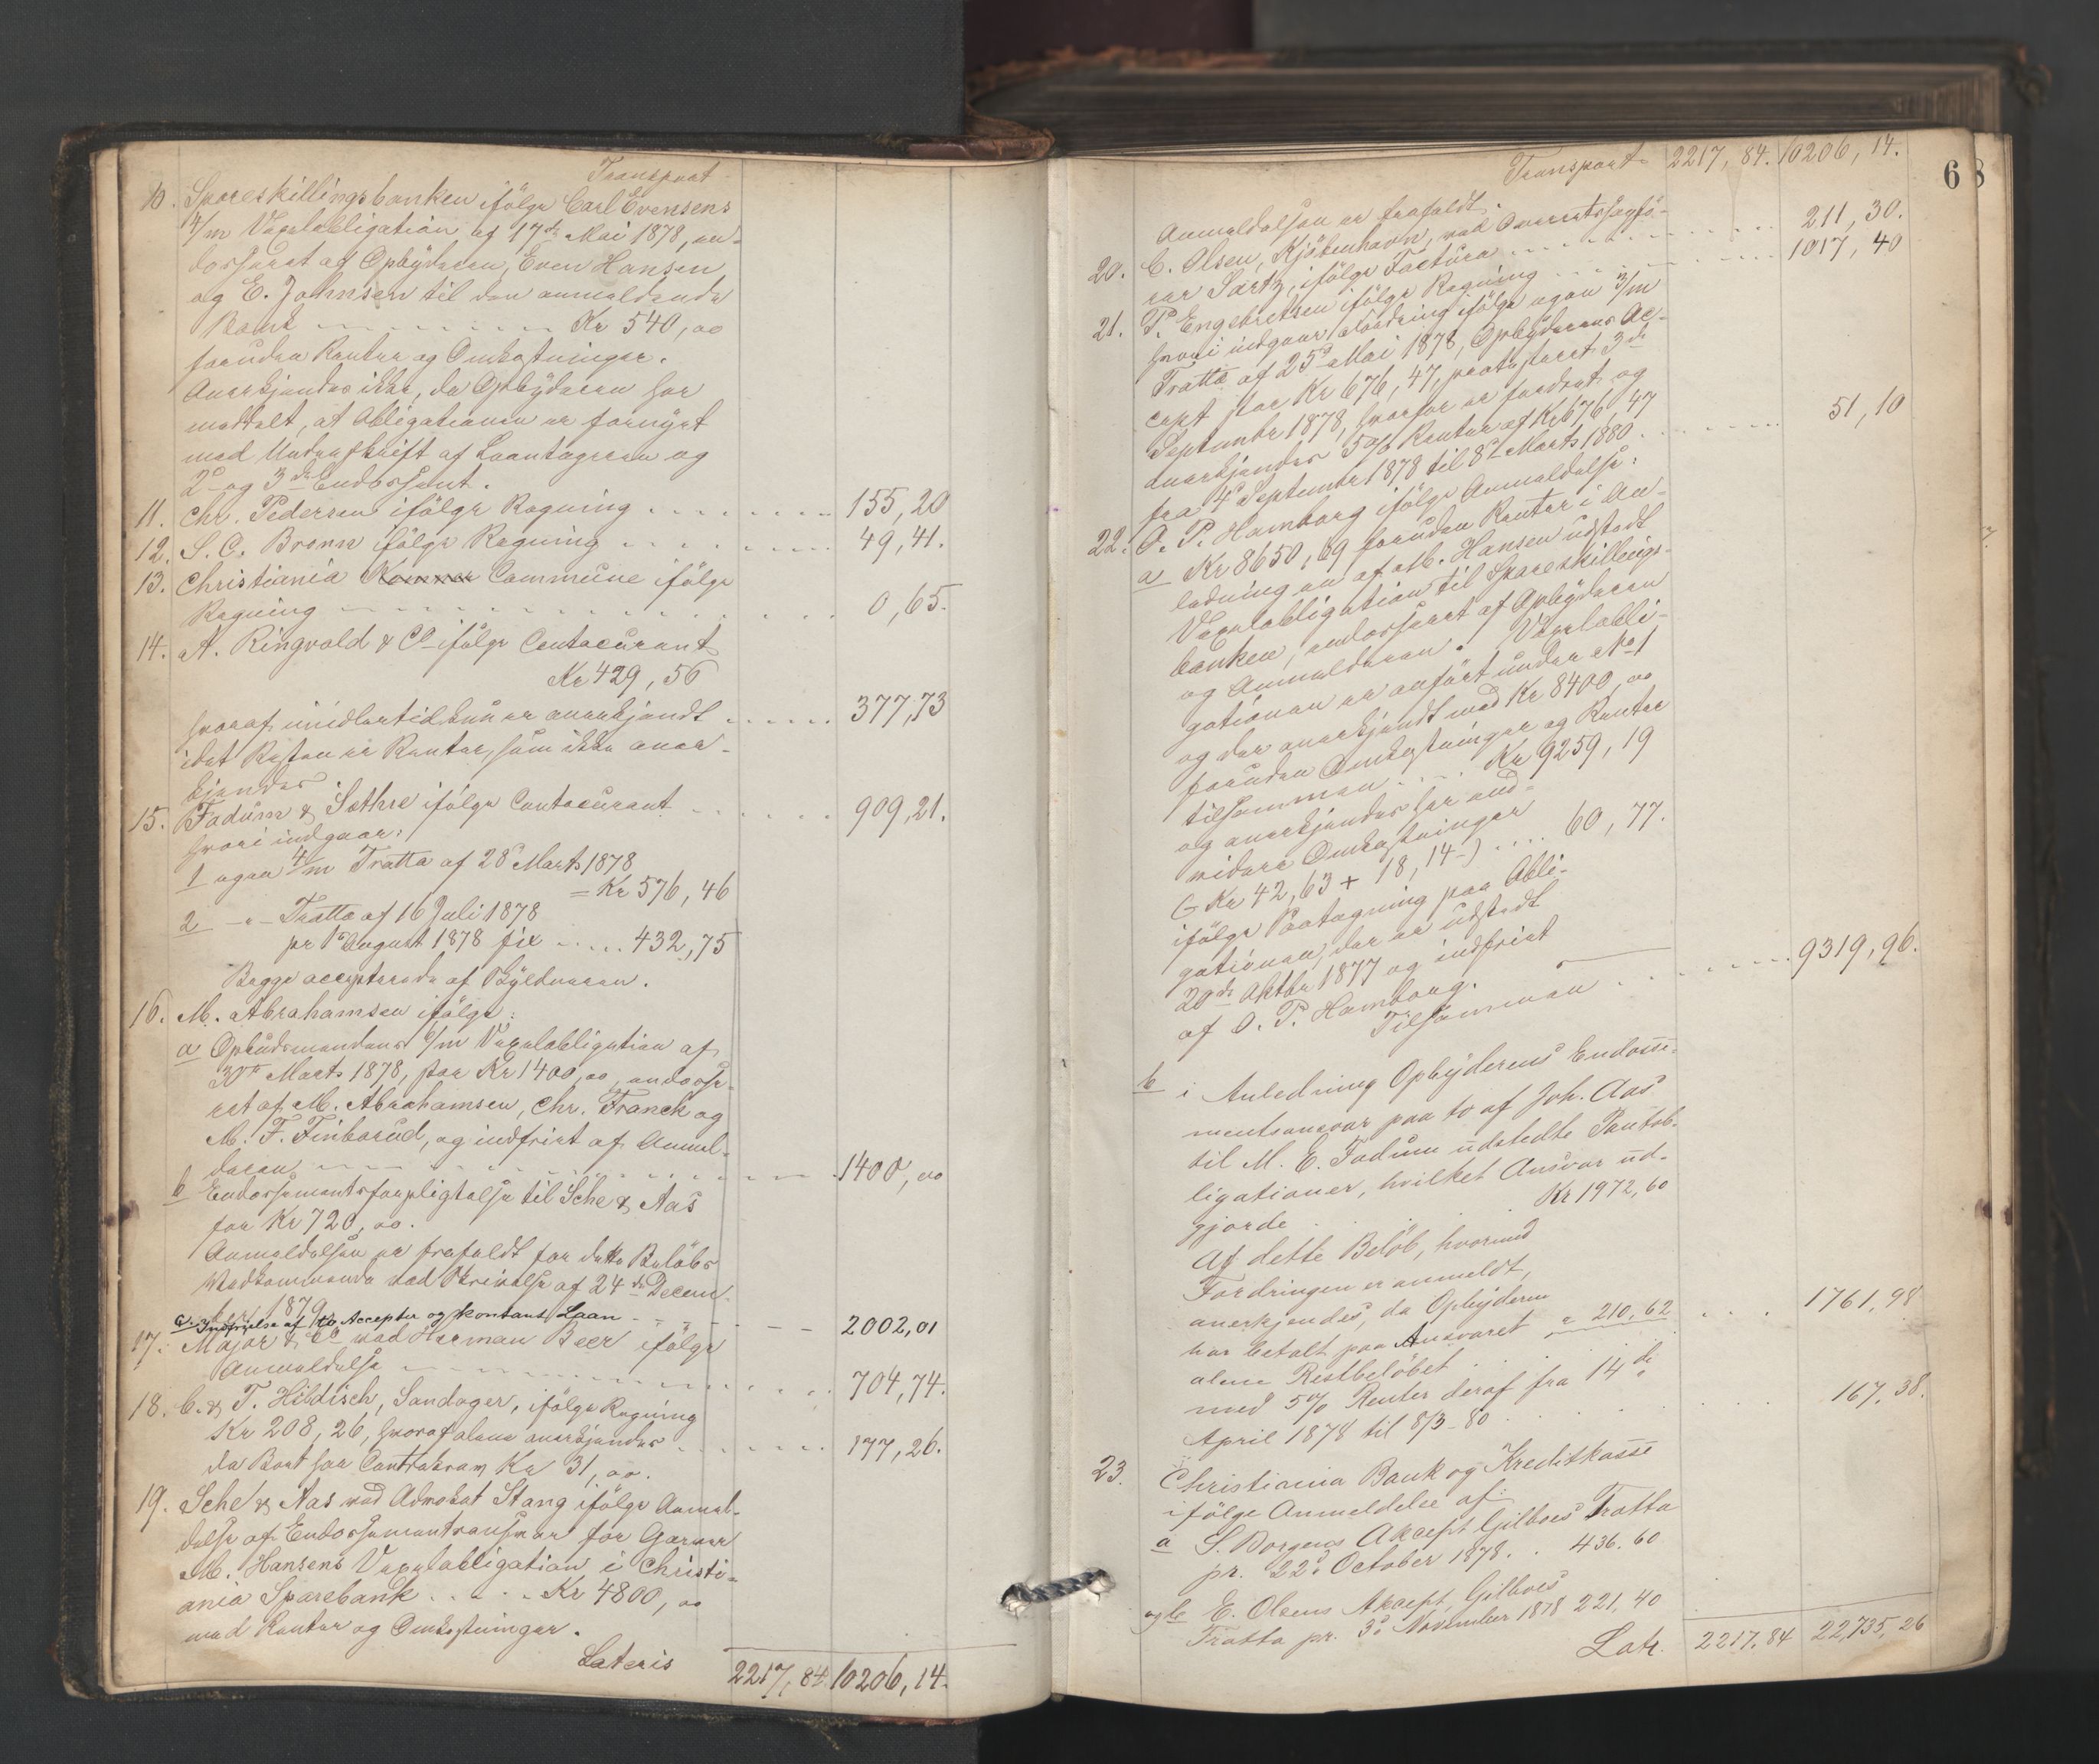 Transport
10. Spareskillingsbanken ifölge Carl Evensens
4/m Vexelobligation af 17de Mai 1878, en-
dosseret af Opbyderen, Even Hansen
og E. Johnsen til den anmeldende
Bank Kr 540,00
foruden Renter og Omkostninger.
Anerkjendes ikke, da Opbyderen har
meddelt, at Obligationen er fornyet
med Underskrift af Laantageren og
2den og 3die Endossent.
11. Chr. Pedersen ifölge Regning 155,20
12. S. C. Brann ifölge Regning 49,41.
13. Christiania Commune ifölge
Regning 0,65.
14. A. Ringvold & Co ifölge Contocurant
Kr 429,56
hvoraf imidlertid kun er anerkjendt 377,73
idet Resten er Renter, som ikke aner-
kjendes
15. Fadum & Sæthre ifölge Contocurant 909,21.
hvori indgaar:
1 egen 4/m Tratta af 28 Marts 1878
= Kr 576,46
2 -"- Tratta af 16 Juli 1878
pr 1 August 1878 fix 432,75
Begge accepterede af Skyldneren.
16. M. Abrahamsen ifölge:
a Opbudsmandens 6/m Vexelobligation af
30te Marts 1878, stor Kr 1400,00, endosse-
ret af M. Abrahamsen, Chr. Franck og
M. F. Finborud, og indfriet af Anmel-
deren 1400,00
b Endossementsforpligtelse til Sche & Aas
for Kr 720,00.
Anmeldelsen er frafaldt for dette Belöbs
Vedkommende ved Skrivelse af 24de Decem-
ber 1879
c. Indfrielse af to Accepter og kontant Laan 2002,01
17. Major & Co ved Herman Beer ifölge
Anmeldelse 704,74.
18. C. & T. Hildisch, Sandager, ifölge Regning
Kr 208,26, hvoraf alene anerkjendes 177,26.
da Bort for Contrakram Kr 31,00.
19. Sche & Aas ved Advokat Stang ifölge Anmel-
delse af Endossementsansvar for Garver
M. Hansens Vexelobligation i Christi-
ania Sparebank Kr 4800,00
med Renter og Omkostninger.
Lateris 2217,84. 10206,14.
68
Transport 2217,84. 10206,14.
Anmeldelsen er frafaldt.
20. C. Olsen, Kjöbenhavn, ved Overretssagfö-
rer Sartz, ifölge Factura 211,30.
21. P. Engebretsen ifölge Regning 1017,40
hvori indgaar Fordring ifölge egen 3/m
Tratta af 25 Mai 1878, Opbyderens Ac-
cept stor Kr 676,47, protesteret 3de
September 1878, hvorfor er fordret og
anerkjendes 5% Renter af Kr 676,47
fra 4 September 1878 til 8 Marts 1880 51,10
22. O. P. Hamborg ifölge Anmeldelse:
a Kr 8650,69 foruden Renter i An-
ledning en af M. Hansen udstedt
Vexelobligation til Spareskillings-
banken, endosseret af Opbyderen
og Anmelderen. Vexelobli-
gationen er anfört under No 1
og der anerkjendt med Kr 8400,00
foruden Omkostninger og Renter
tilsammen Kr 9259,19
og anerkjendes her end-
videre Omkostninger
(= Kr 42,63 + 18,14 =) 60,77.
ifölge Paategning paa Obli-
gationen, der er udstedt
29de Oktbr 1877 og indfriet
af O. P. Hamborg.
Tilsammen 9319,96.
b i Anledning Opbyderens Endosse-
mentsansvar paa to af Joh. Aas
til M. E. Fadum udstedte Pantob-
ligationer, hvilket Ansvar ud-
gjorde Kr 1972,60
Af dette Belöb, hvormed
Fordringen er anmeldt,
anerkjendes, da Opbyderen
har betalt paa Ansvaret " 210,62
alene Restbelöbet 1761,98
med 5% Renter deraf fra 14de
April 1878 til 8/3-80 167,38.
23. Christiania Bank og Kreditkasse
ifölge Anmeldelse af:
a S. Borgens Akcept Gilboes Tratta
pr. 22 October 1878. 436.60
og b E. Olsens Akcept, Gilboes
Tratta pr. 3 November 1878 221,40
Latr. 2217.84 22,735,26